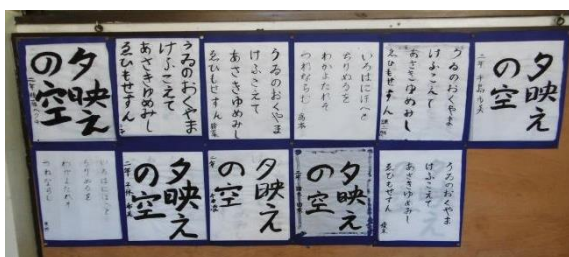 夕映え
の空
二年
うゐのおくやま
けふこえて
あさきゆめみし
ゑひもせすん
うゐのおくやま
けふこえて
あさきゆめみし
ゑひもせすん
いろはにほへと
ちりぬるを
わかよたれそ
つねならむ
うゐのおくやま
けふこえて
あさきゆめみし
ゑひもせすん
夕映え
の空
二年
いろはにほへと
ちりぬるを
わかよたれそ
つねならむ
夕映え
の空
二年
夕映え
の空
二年
夕映え
の空
うゐのおくやま
けふこえて
あさきゆめみし
ゑひもせすん